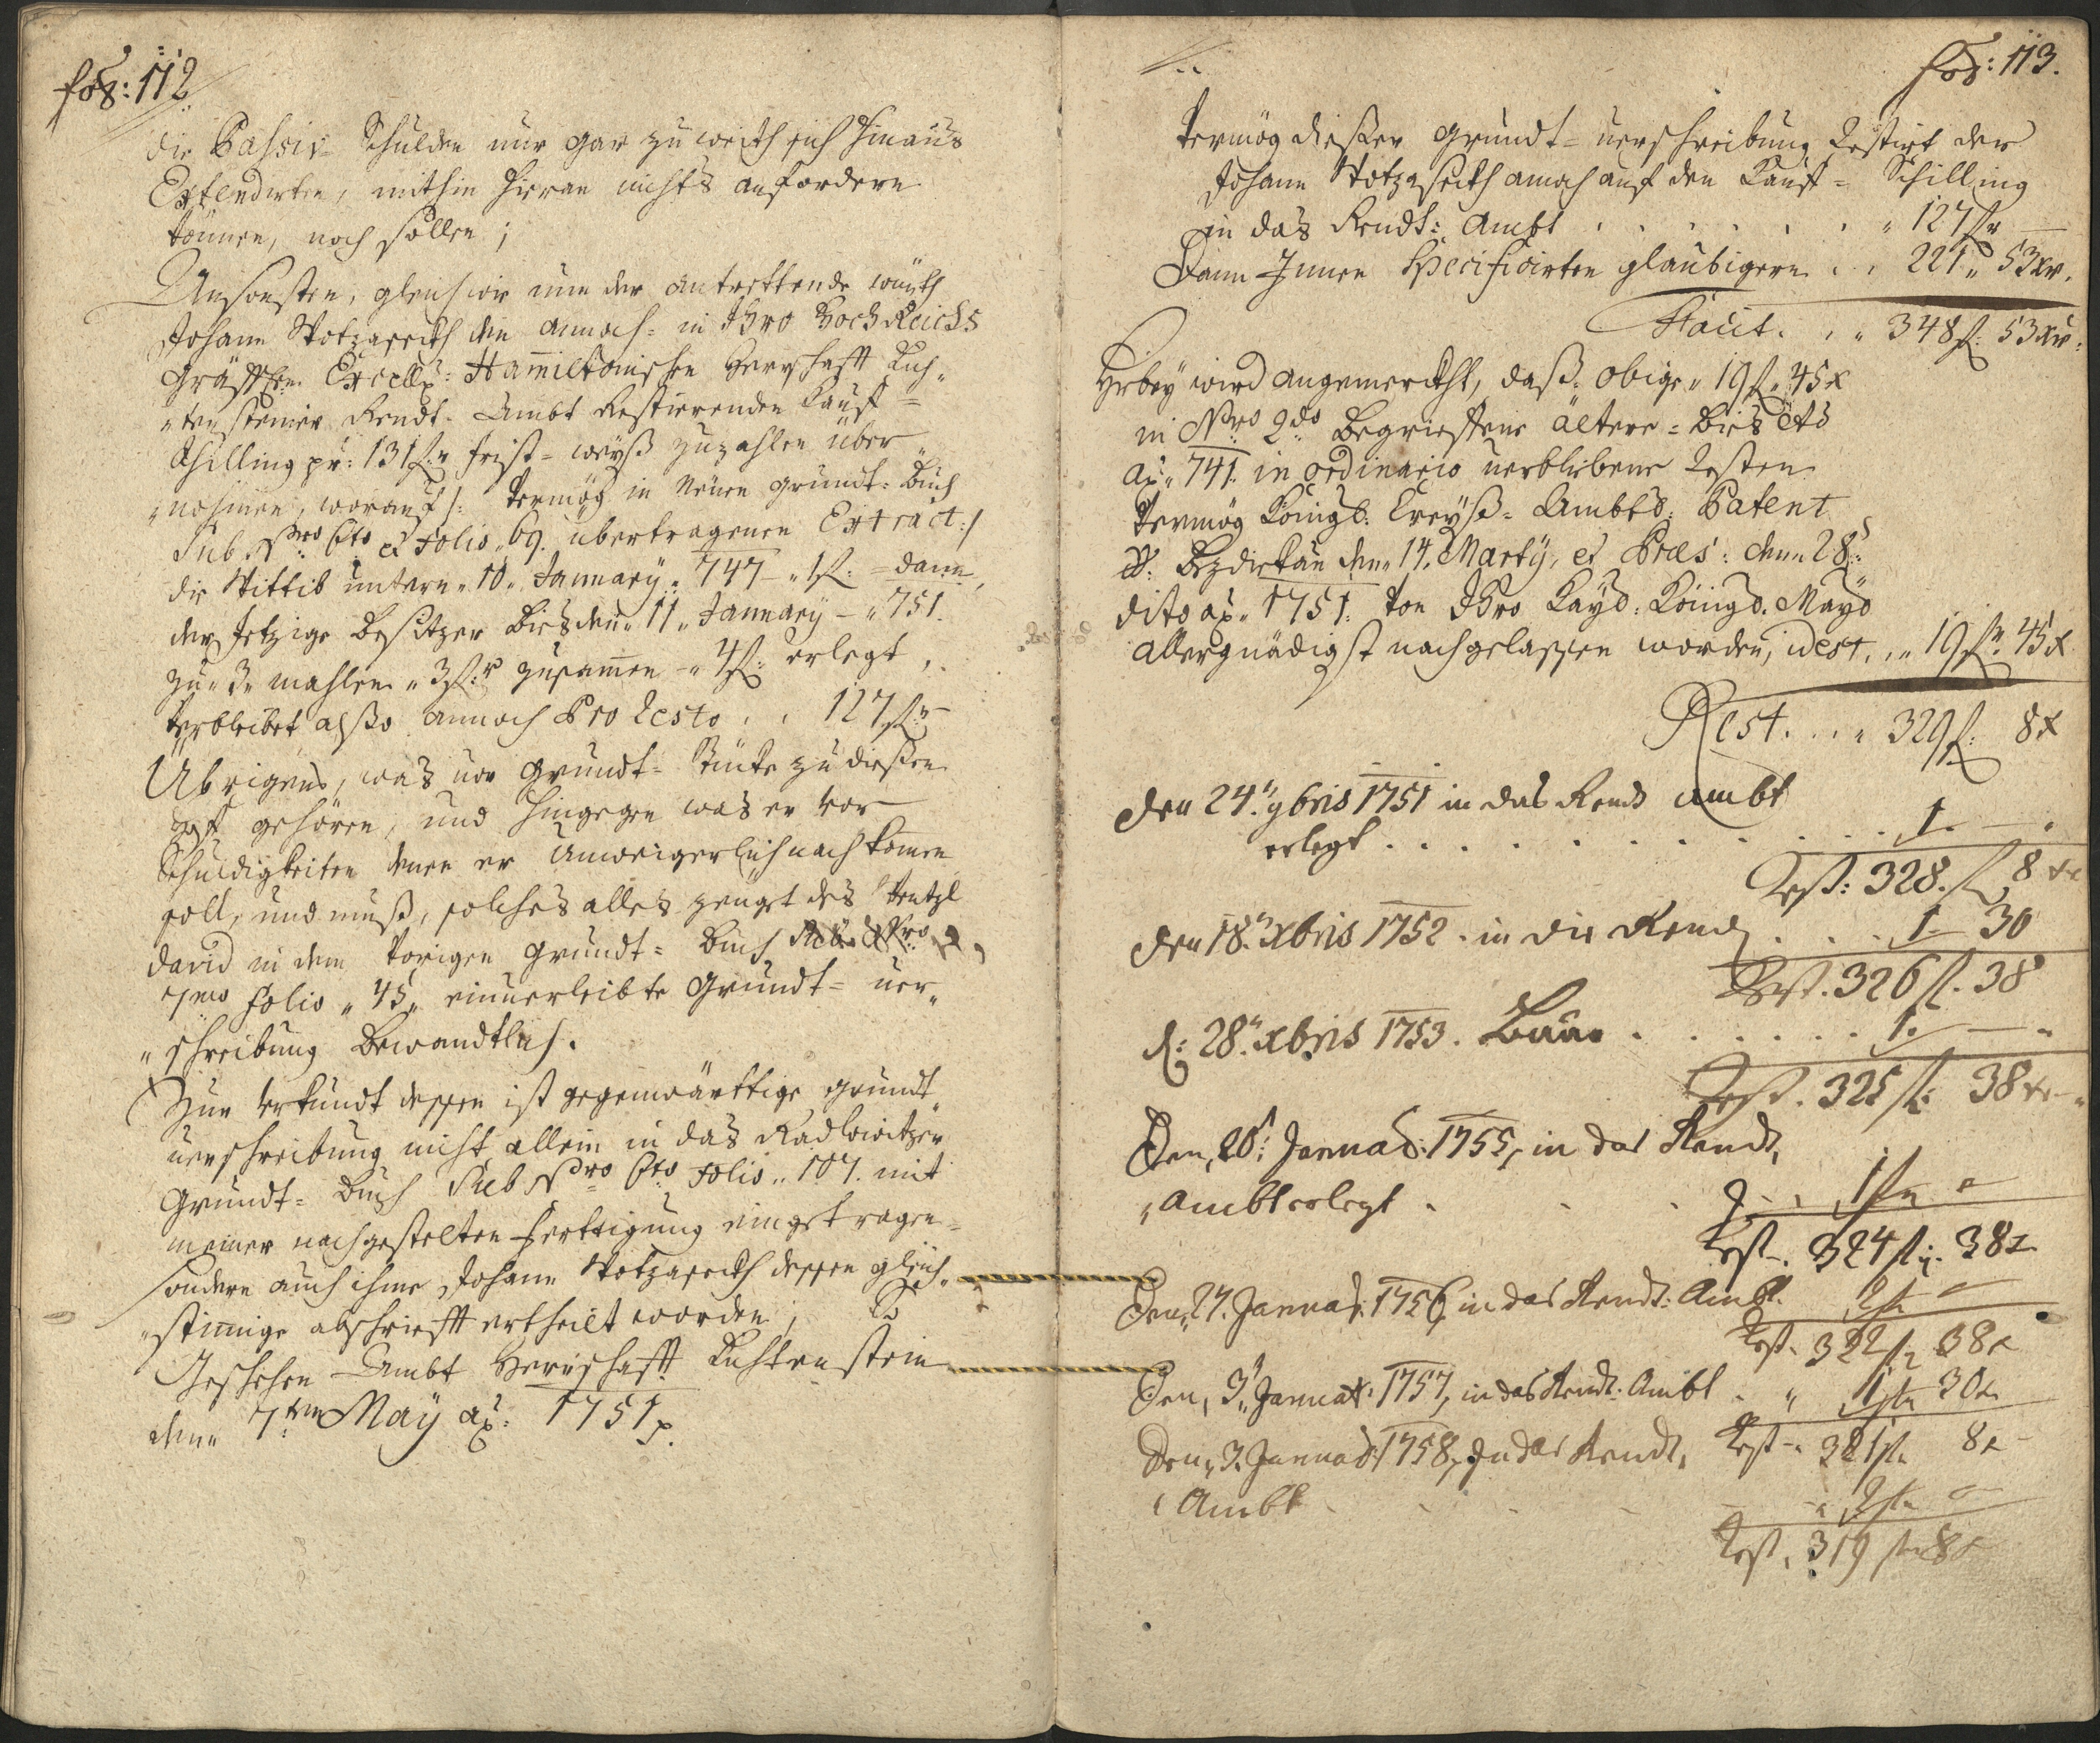 fol: 112
die Passiv= Schulden nur gar zu weith sich hinaus
Extendirten, mithin hieran nichts anfordern
können, noch sollen;
Ansonsten, gleichwie nun der antrettende würth
Johann annoch= in Ihro Hoch Reichs
Gräffl: Excell: Hamiltonischen Herrschafft Lich„
„tensteiner Rendt= Ambt Restierenden Kauff=
Schilling pr: 131 f: frist=weyß zuzahlen über„
„nohmen, worauf /: Vermög in Neuen grundt= Buch
Sub Nro 6to et Folio „69. übertragenen Extract :/
die Wittib untern „10„ January „ 747 „ 1 f: = dann
der Jetzige Besitzer Bis den „11„ January – „751.
zu „3„ mahlen „3 f: zusammen – „4 f: erlegt,
Verbleibet also annoch Pro Resto . . 127 f:
Übrigens, was vor grundt= Stücke zu diesen
gehören, und hingegen was er vor
Schuldigkeiten denen er Unweigerlich nach komen
soll, und muß, solches alles zeuget des Wentzl
David in dem Vorigen grundt= Buch Sub Nro
7mo Folio „45„ einverleibte Grundt= ver„
„schreibung Bewandtlich.
Zur Urkundt dessen ist gegenwärttige grundt„
verschreibung nicht allein in das Radlowitzer
Grundt= Buch Sub Nro 6to Folio „107. mit
meiner nachgestelten Ferttigung eingetragen=
sondern auch ihme Johann dessen gleich„
„stimige abschriefft ertheilt worden;
Geschehen Ambt Herrschafft Lichtenstein
den„ 7ten May ao: 1751 p.
fol: 113.
Vermög dießer grundt= verschreibung Restirt der
Johann annoch auf den Kauff= Schilling
in das Rendt: Ambt . . . . . . „ 127 f
Dann Jenen Specificirten glaubigern . . 221 „ 53 xr.
Facit. . „ 348 f: 53 xr:
Hrbey wird angemerckht, daß: obige „19 f „ 45 x
in Nro 2do Begriffene ältere= Bis
ao „ 741. in ordinario verblibene Resten
Vermög Königl: Creyß= Ambts: Patent
den„ 14. Marty, et Præs: den„ 28:
dito ao „ 1751: von Ihro Kayl: Königl. Mayl
allergnädigst nachgelassen worden, idest. „ 19 f 45 x
Rest. . . „ 329 f: 8 x
den 24. 9bris 1751 in das Rend ambt
erlegt . . . . . . . . . 1. —
Rest: 328. f 8 xr
den 18. xbris 1752. in die Rend . . . 1. 30
Rest. 326 f. 38
d: 28. xbris 1753. . . . . . . 1. —
Rest. 325 f: 38 xr
Den, 20: Januar: 1755, in das Rendt„
„Ambt erlegt . . . 1 f „ —
Rest. 324 f: 38 x
Den, 27. Januar: 1756, in das Rendt: Ambt. 2 f —
Rest. 322 f 38 x
Den, 3. Januar: 1757, in das Rendt: Ambt . „ 1 f 30 x
Rest 321 f 8 x
Den, 3. Januar: 1758, In das Rendt„
„Ambt . . . . 2 f —
Rest, 319 f 8 x